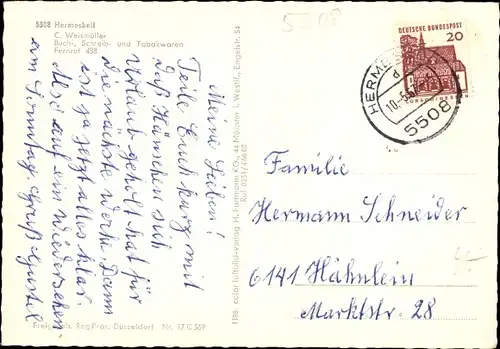 5508
5508 Hermeskeil
C. Weismüller
Buch-, Schreib- und Tabakwaren
Fernruf 488
Meine Lieben!
Teile Euch kurz mit
Daß Hänschen sich
Urlaub geholt hat für
die nächste Woche. Dann
ist ja jetzt alles klar.
Also auf ein Wiedersehen
am Sonntag
Freigeg. d. Reg. Präs. Düsseldorf Nr. 17 C 559
Hans color luftbild-verlag H. Hartmann KG., 44 Münster i. Westf., Engelstr. 54
Ruf 0251/46660
DEUTSCHE BUNDESPOST
20
LORSCH/HESSEN
HERMESKEIL
d
10.-5.
5508
Familie
Hermann Schneider
6141 Hähnlein
Marktstr. 28